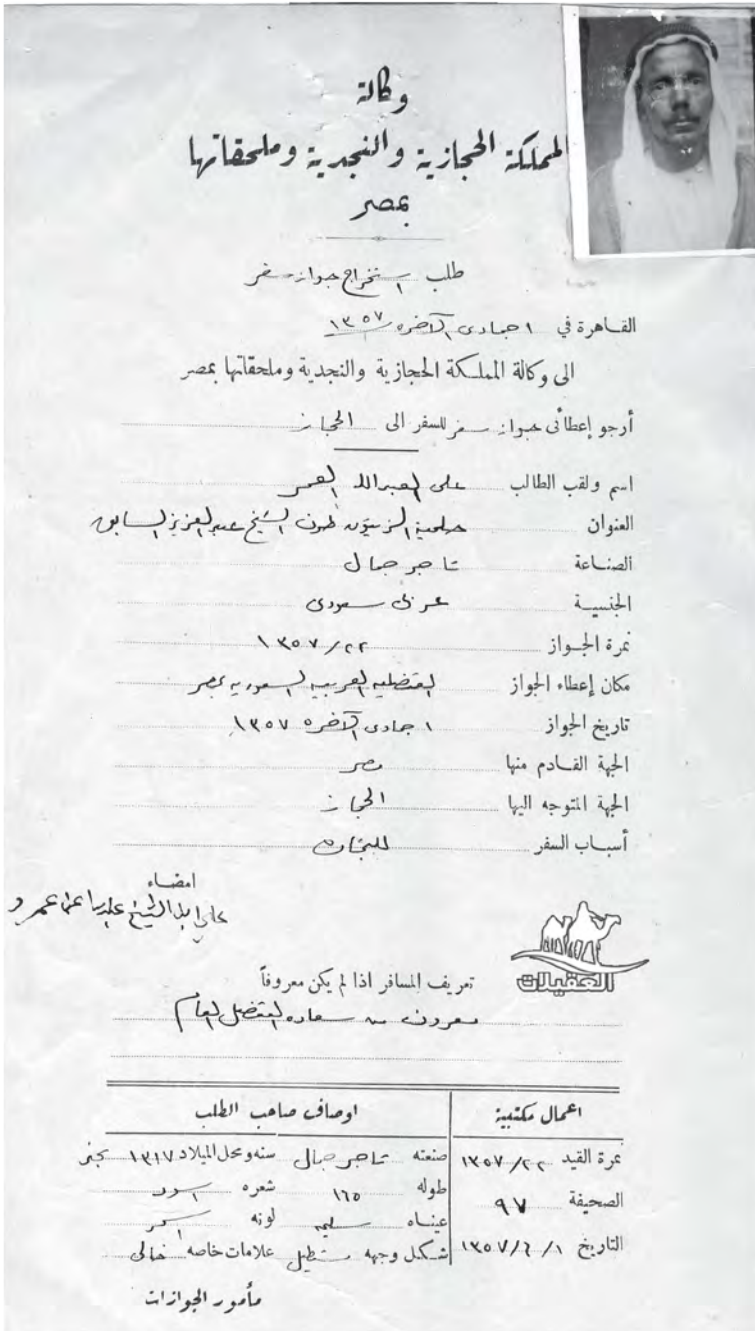 وكالة
المملكة الحجازية والنجدية وملحقاتها
بمصر
طلب استخراج جواز سفر
القاهرة في ١ جمادى الآخره ١٣٥٧
الى وكالة المملكة الحجازية والنجدية وملحقاتها بمصر
أرجو إعطائى جواز سفر للسفر الى الحجاز
اسم ولقب الطالب على العبدالله العمر
العنوان حلمية الزيتون طرف الشيخ عبدالعزيز السابق
الصناعة تاجر جمال
الجنسية عربى سعودى
نمرة الجواز ١٣٥٧/٢٢
مكان إعطاء الجواز القنصليه العربيه السعوديه بمصر
تاريخ الجواز ١ جمادى الآخره ١٣٥٧
الجهة القادم منها مصر
الجهة المتوجه اليها الحجاز
أسباب السفر للتجاره
امضاء
العقيلات
تعريف المسافر اذا لم يكن معروفاً
معروف من سعاده القنصل العام
اعمال مكتبية اوصاف صاحب الطلب
نمرة القيد ١٣٥٧/٢٢ صنعته تاجر جمال سنه ومحل الميلاد ١٣١٧ نجد
الصحيفة ٩٧ طوله ١٦٥ شعره اسود
عيناه سليمه لونه اسمر
التاريخ ١٣٥٧/٦/١ شكل وجهه مستطيل علامات خاصه خالى
مأمور الجوازات